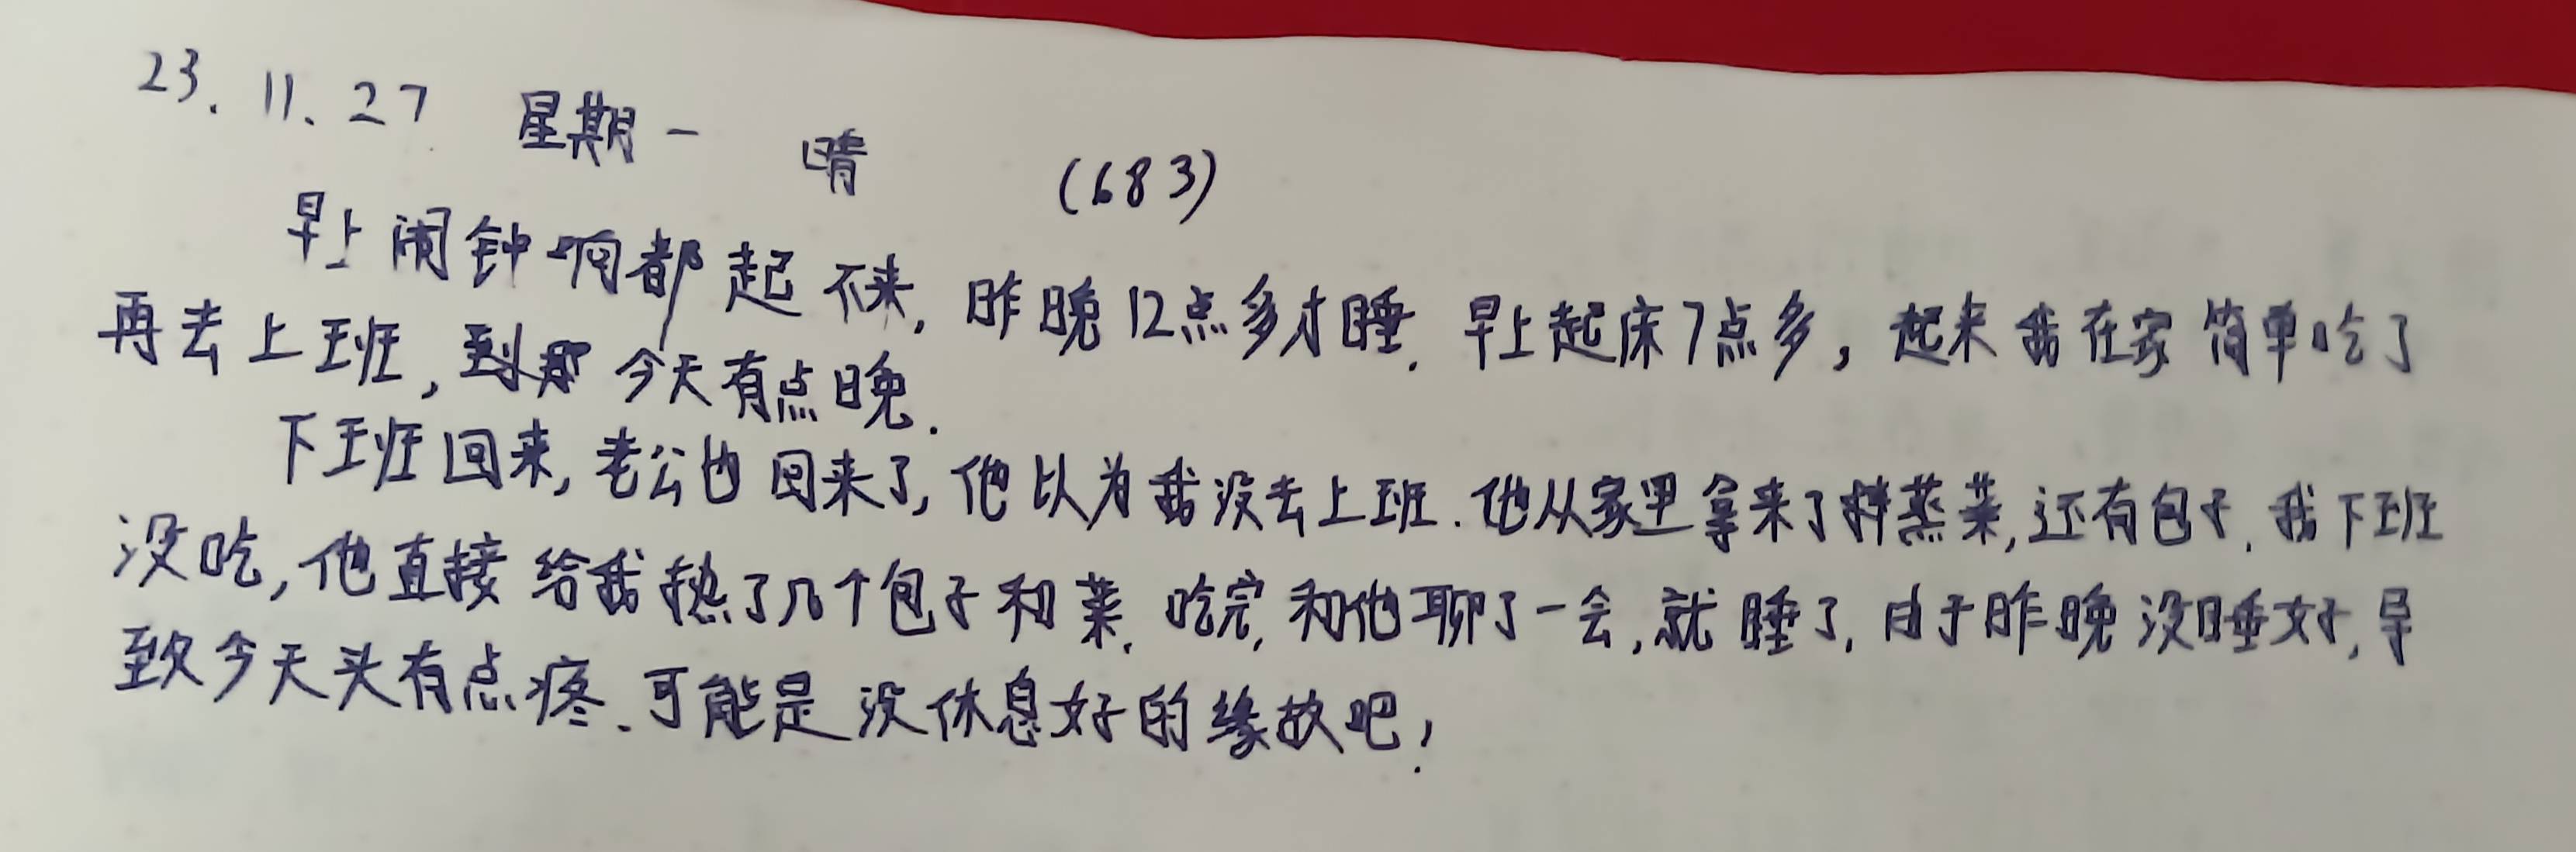 23.11.27 星期一 晴 (683)
早上闹钟响都起不来,昨晚12点多才睡.早上起床7点多,起来我在家简单吃了
再去上班,到 今天有点晚.
下班回来,老公也回来了,他以为我没去上班.他从家里拿来了拌蒸菜,还有包子.我下班
没吃,他直接给我热了几个包子和菜.吃完,和他聊了一会,就睡了.由于昨晚没睡好,导
致今天头有点疼.可能是没休息好的缘故吧!